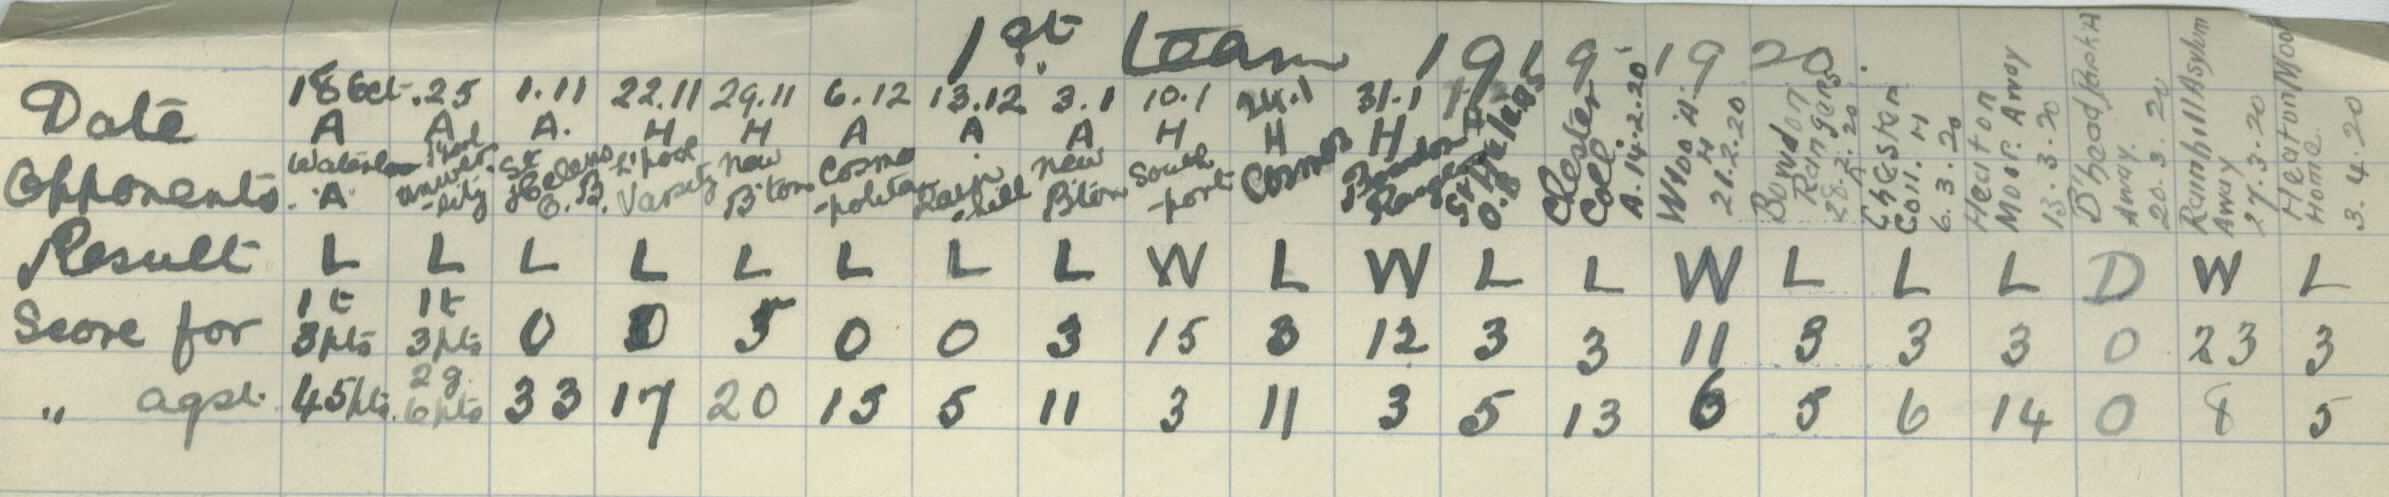 1st team 1919-1920.
Date 18 Oct. 25 1.11 22.11 29.11 6.12 13.12 3.1 10.1 24.1 31.1
A A A. H H A A A H H H
Opponents. Waterloo "A" L'pool univer-sity St Helens O.B. L'pool Varsity New B'ton Cosmo-politan Rain-hill New B'ton South-port Cosmos Bowdon Rangers St Helens O.B. Chester Coll. A. 14.2.20 W'loo 'A' H 21.2.20 Bowdon Rangers 28.2.20 A Chester Coll. H 6.3.20 Heaton Moor. Away 13.3.20 B'head Park A Away. 20.3.20 Rainhill Asylum Away 27.3.20 Heaton Moor Home. 3.4.20
Result L L L L L L L L W L W L L W L L L D W L
1t 1t
Score for 3pts 3pts 0 3 5 0 0 3 15 3 12 3 3 11 3 3 3 0 23 3
2g.
" agst. 45pts. 6pts 33 17 20 15 5 11 3 11 3 5 13 6 5 6 14 0 8 5